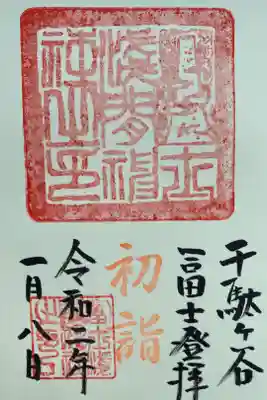 社之印
千駄ヶ谷
冨士登拝
初詣
令和二年
一月八日